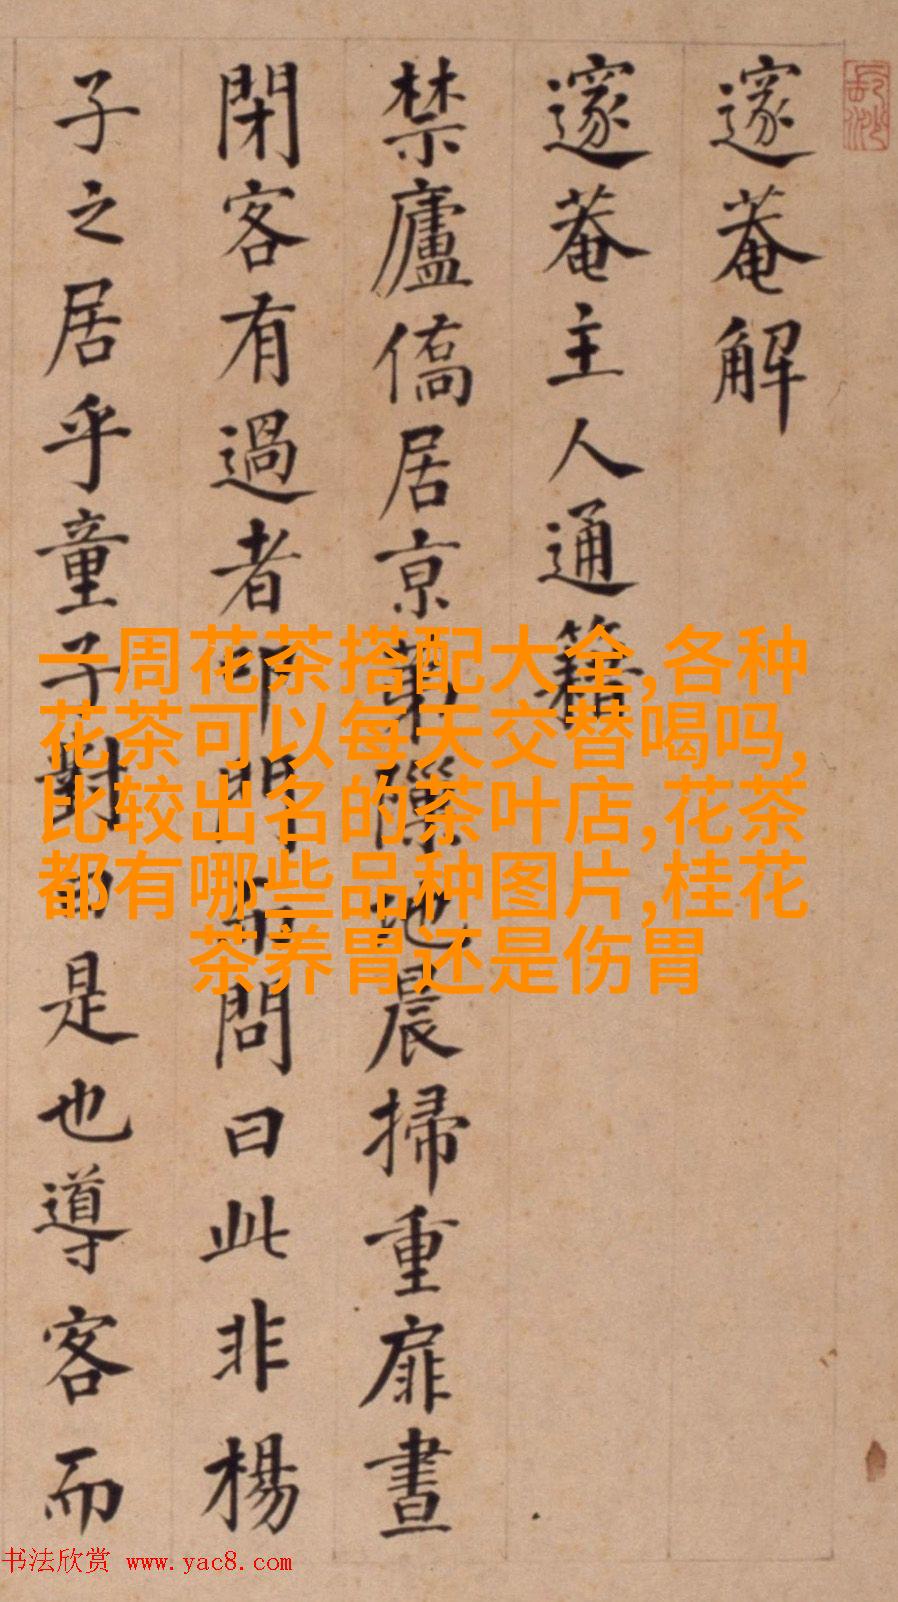 邃菴解
邃菴主人通籍
禁廬僑居亰第隙地晨掃重扉晝
閉客有過者叩門而問曰此非楊
子之居乎童子對曰是也導客而
一周花茶搭配大全,各种
花茶可以每天交替喝吗,
比较出名的茶叶店,花茶
都有哪些品种图片,桂花
茶养胃还是伤胃
书法欣赏 www.yac8.com